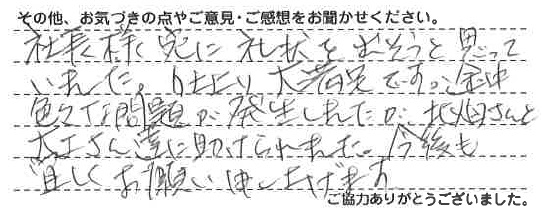 その他、お気づきの点やご意見・ご感想をお聞かせください。
社長様宛に礼状を出そうと思って
いました。仕上り大満足です。途中
色々な問題が発生しましたが、北畑さんと
大工さん達に助けられました。今後も
宜しくお願い申し上げます
ご協力ありがとうございました。